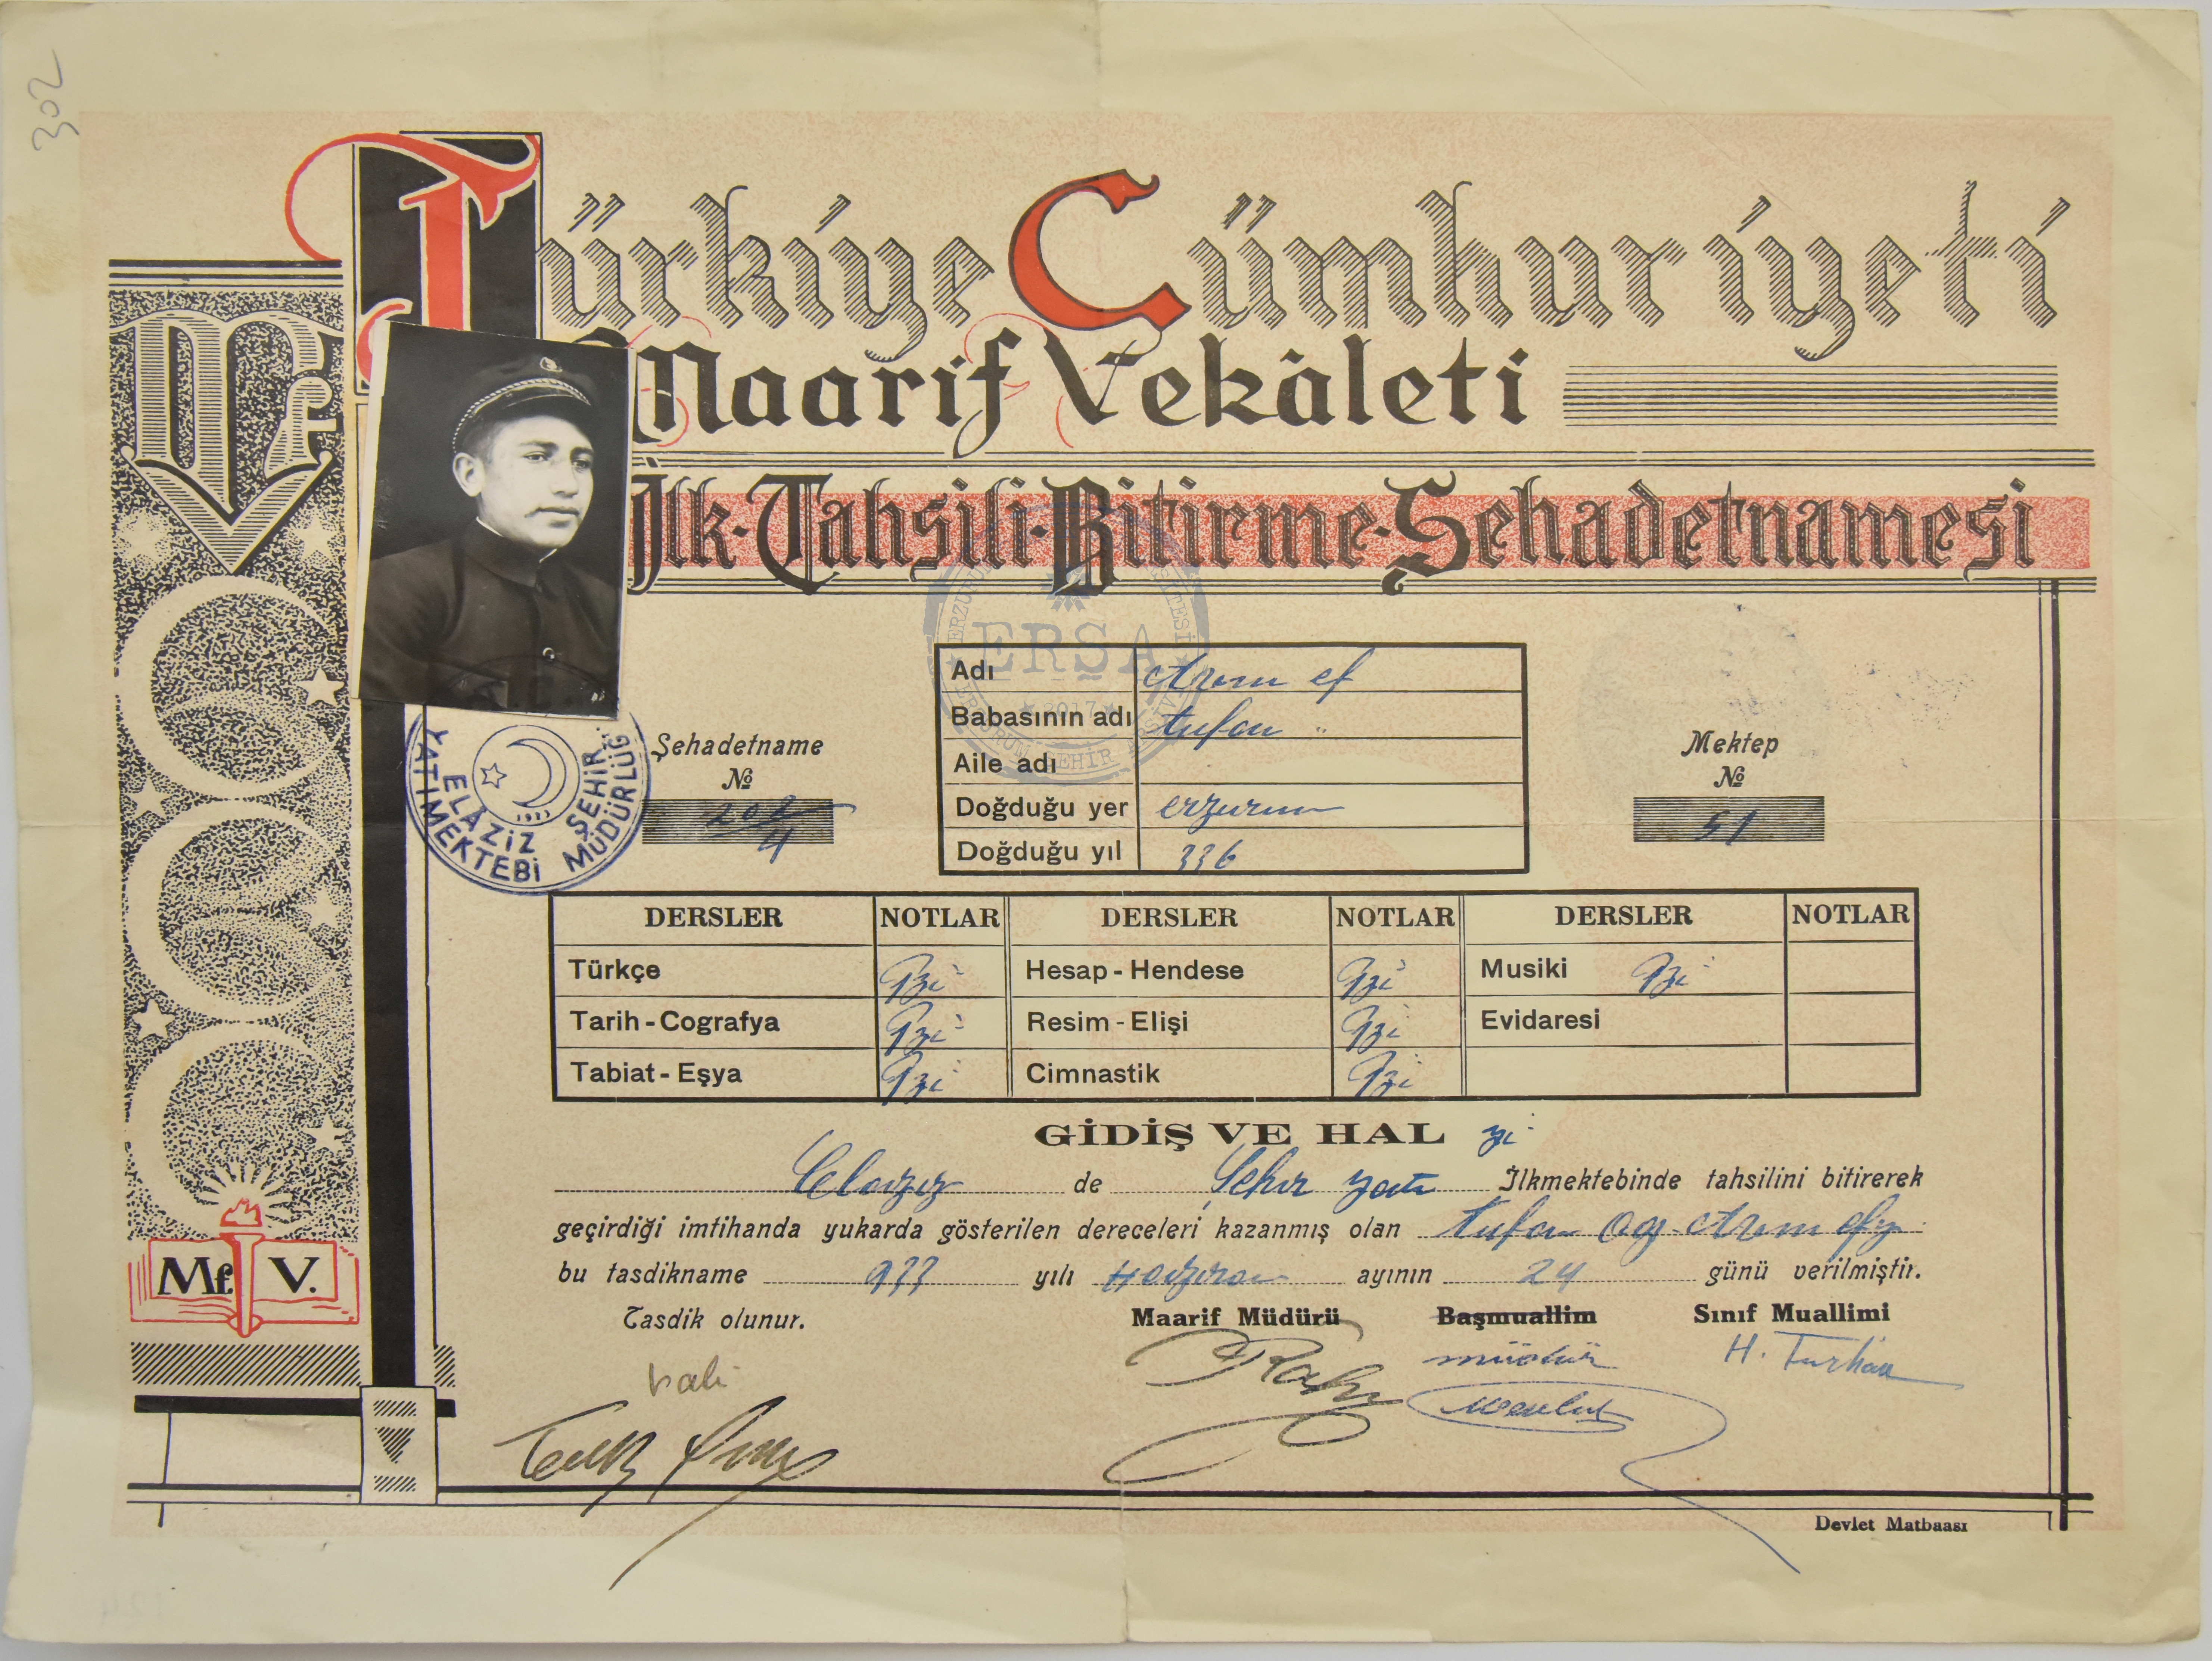 302
Türkiye Cümhuriyeti
Maarif Vekâleti
İlk-Tahsili-Bitirme-Şehadetnamesi
Mf
ERSA
2017
Adı
Babasının adı tufan "
Aile adı
Doğduğu yer erzurum
Doğduğu yıl 336
Şehadetname
№
202/4
Mektep
№
51
ELÂZİZ ŞEHİR
YATIMEKTEBİ MÜDÜRLÜĞ
DERSLER NOTLAR DERSLER NOTLAR DERSLER NOTLAR
Türkçe İyi Hesap-Hendese İyi Musiki İyi
Tarih-Cografya İyi Resim-Elişi İyi Evidaresi
Tabiat-Eşya İyi Cimnastik İyi
GİDİŞ VE HAL iyi
Elaziz de Şehir yatı İlkmektebinde tahsilini bitirerek
geçirdiği imtihanda yukarda gösterilen dereceleri kazanmış olan tufan og
bu tasdikname 933 yılı Haziran ayının 24 günü verilmiştir.
Tasdik olunur. Maarif Müdürü Başmuallim Sınıf Muallimi
vali müdür H. Turhan
Mf. V.
Devlet Matbaası